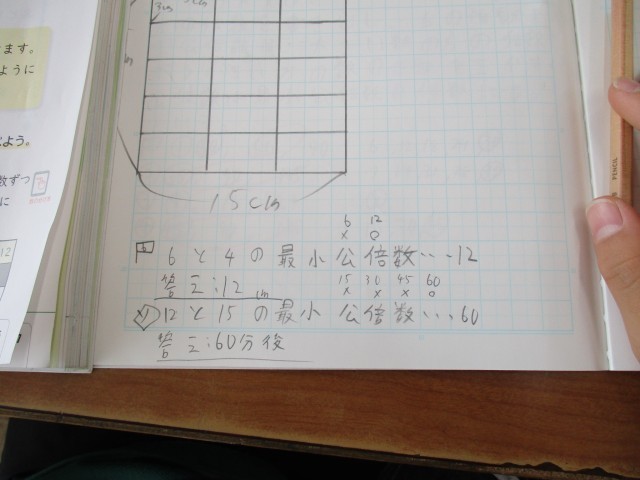 ます。
ように
よう。
数ずつ
に
12
3cm
15cm
6 12
× ○
6と4の最小公倍数…12
答え:12cm
15 30 45 60
× × × ○
12と15の最小公倍数…60
答え:60分後